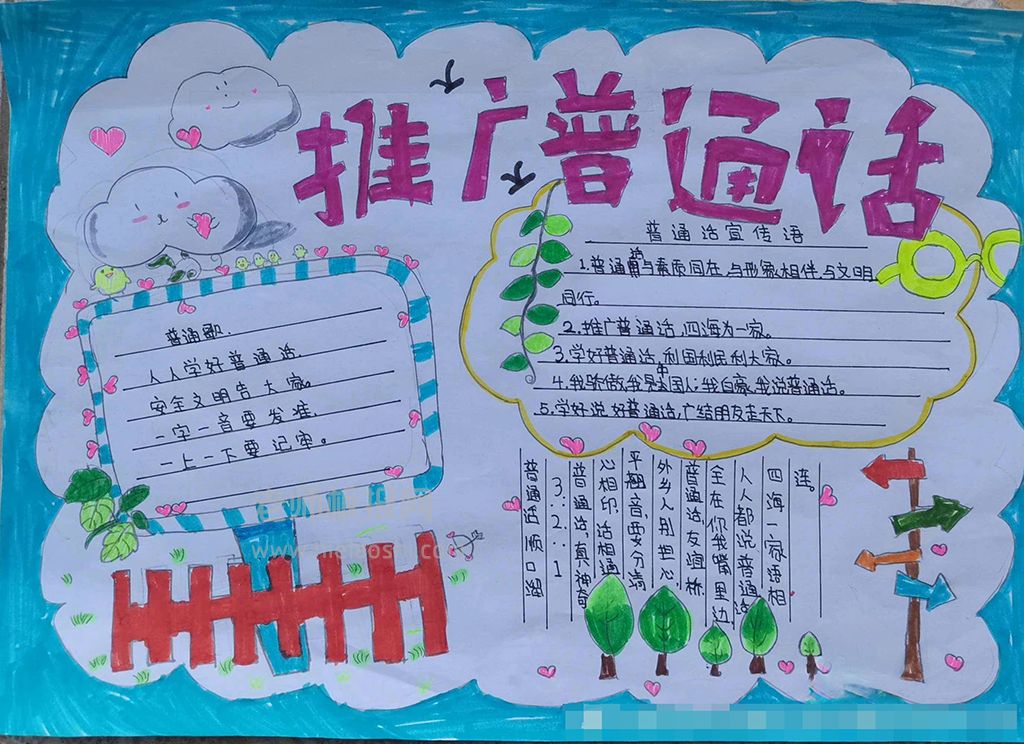 推广普通话
普通话宣传语
1.普通话与素质同在,与形象相伴,与文明
同行。
2.推广普通话,四海为一家。
3.学好普通话,利国利民利大家。
4.我骄傲,我是中国人;我自豪,我说普通话。
5.学好说好普通话,广结朋友走天下。
普通歌.
人人学好普通话.
安全文明告大家。
一字一音要发准.
一上一下要记牢。
普通话顺口溜
3:2:1
普通话,真神奇
心相印,话相通
平翘音,要分清
外乡人别担心,
普通话,友谊桥
全在你我嘴里边
人人都说普通话
四海一家语相
连。